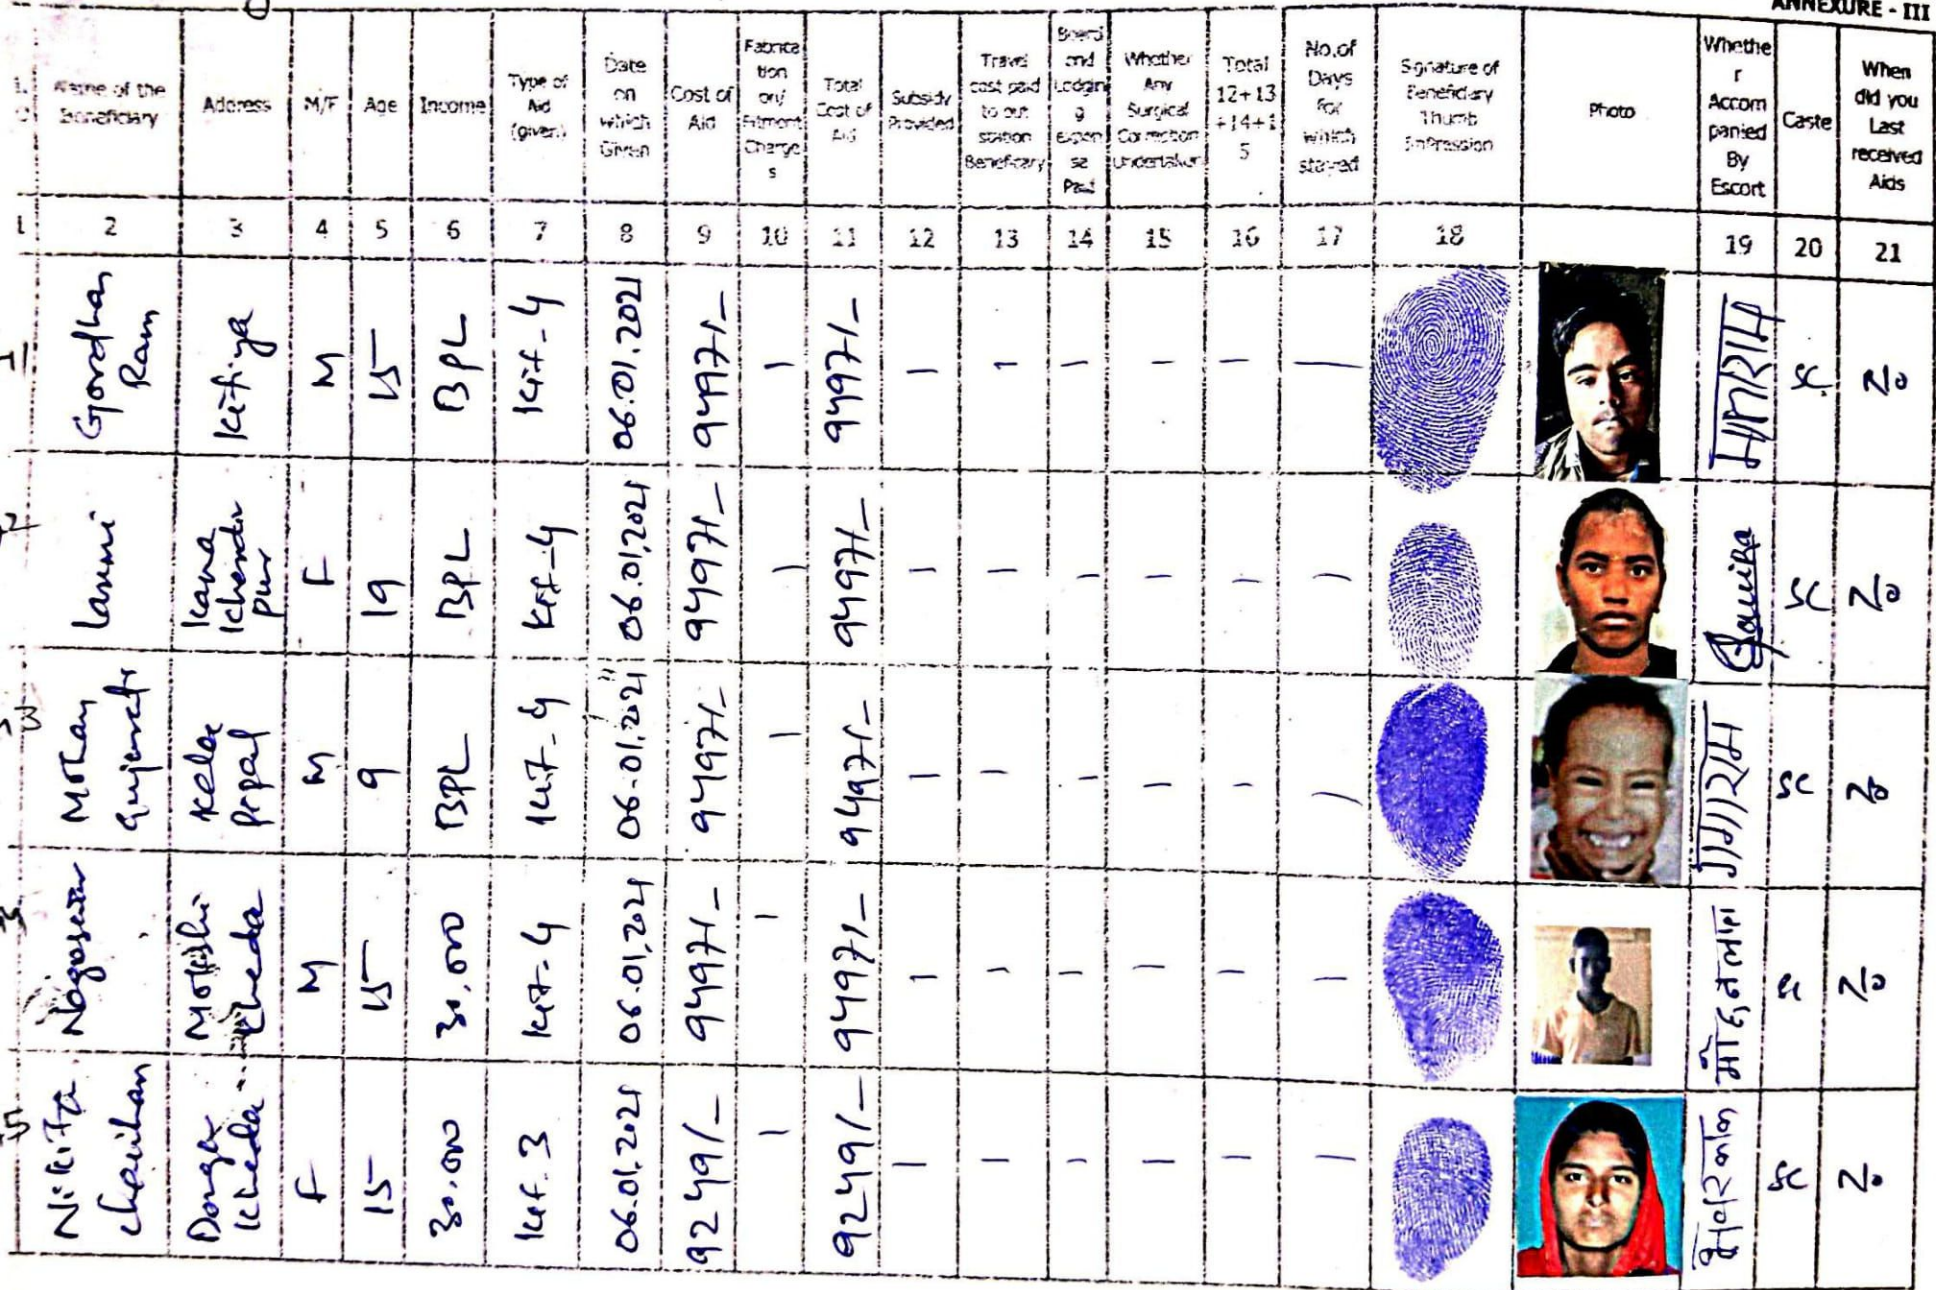 ANNEXURE - III
Name of the Beneficiary
Address
M/F
Age
Income
Type of Aid (given)
Date on which Given
Cost of Aid
Fabrica tion on/ Fitment Charge s
Total Cost of Aid
Subsidy Provided
Travel cost paid to out station Beneficiary
Board and Lodgin g Expen se Paid
Whether Any Surgical Correction Undertaken
Total 12+13 +14+1 5
No.of Days for which stayed
Signature of Beneficiary Thumb Impression
Photo
Whethe r Accom panied By Escort
Caste
When did you Last received Aids
1 2 3 4 5 6 7 8 9 10 11 12 13 14 15 16 17 18 19 20 21
1 Gordhan Ram Kitiya M 15 BPL Kit-4 06.01.2021 9497/- - 9497/- - - - - - - SC No
2 Laxmi Kana kheda pur F 19 BPL Kit-4 06.01.2021 9497/- - 9497/- - - - - - - SC No
3 Mohan Gujarati Kela Pipal M 9 BPL Kit-4 06.01.2021 9497/- - 9497/- - - - - - - गंगाराम SC No
Kheda M 15 30,000 Kit-4 06.01.2021 9497/- - 9497/- - - - - - - मोहनलाल No
5 Nikita Chauhan Donga Kheda F 15 30,000 Kit-3 06.01.2021 9249/- - 9249/- - - - - - - SC No